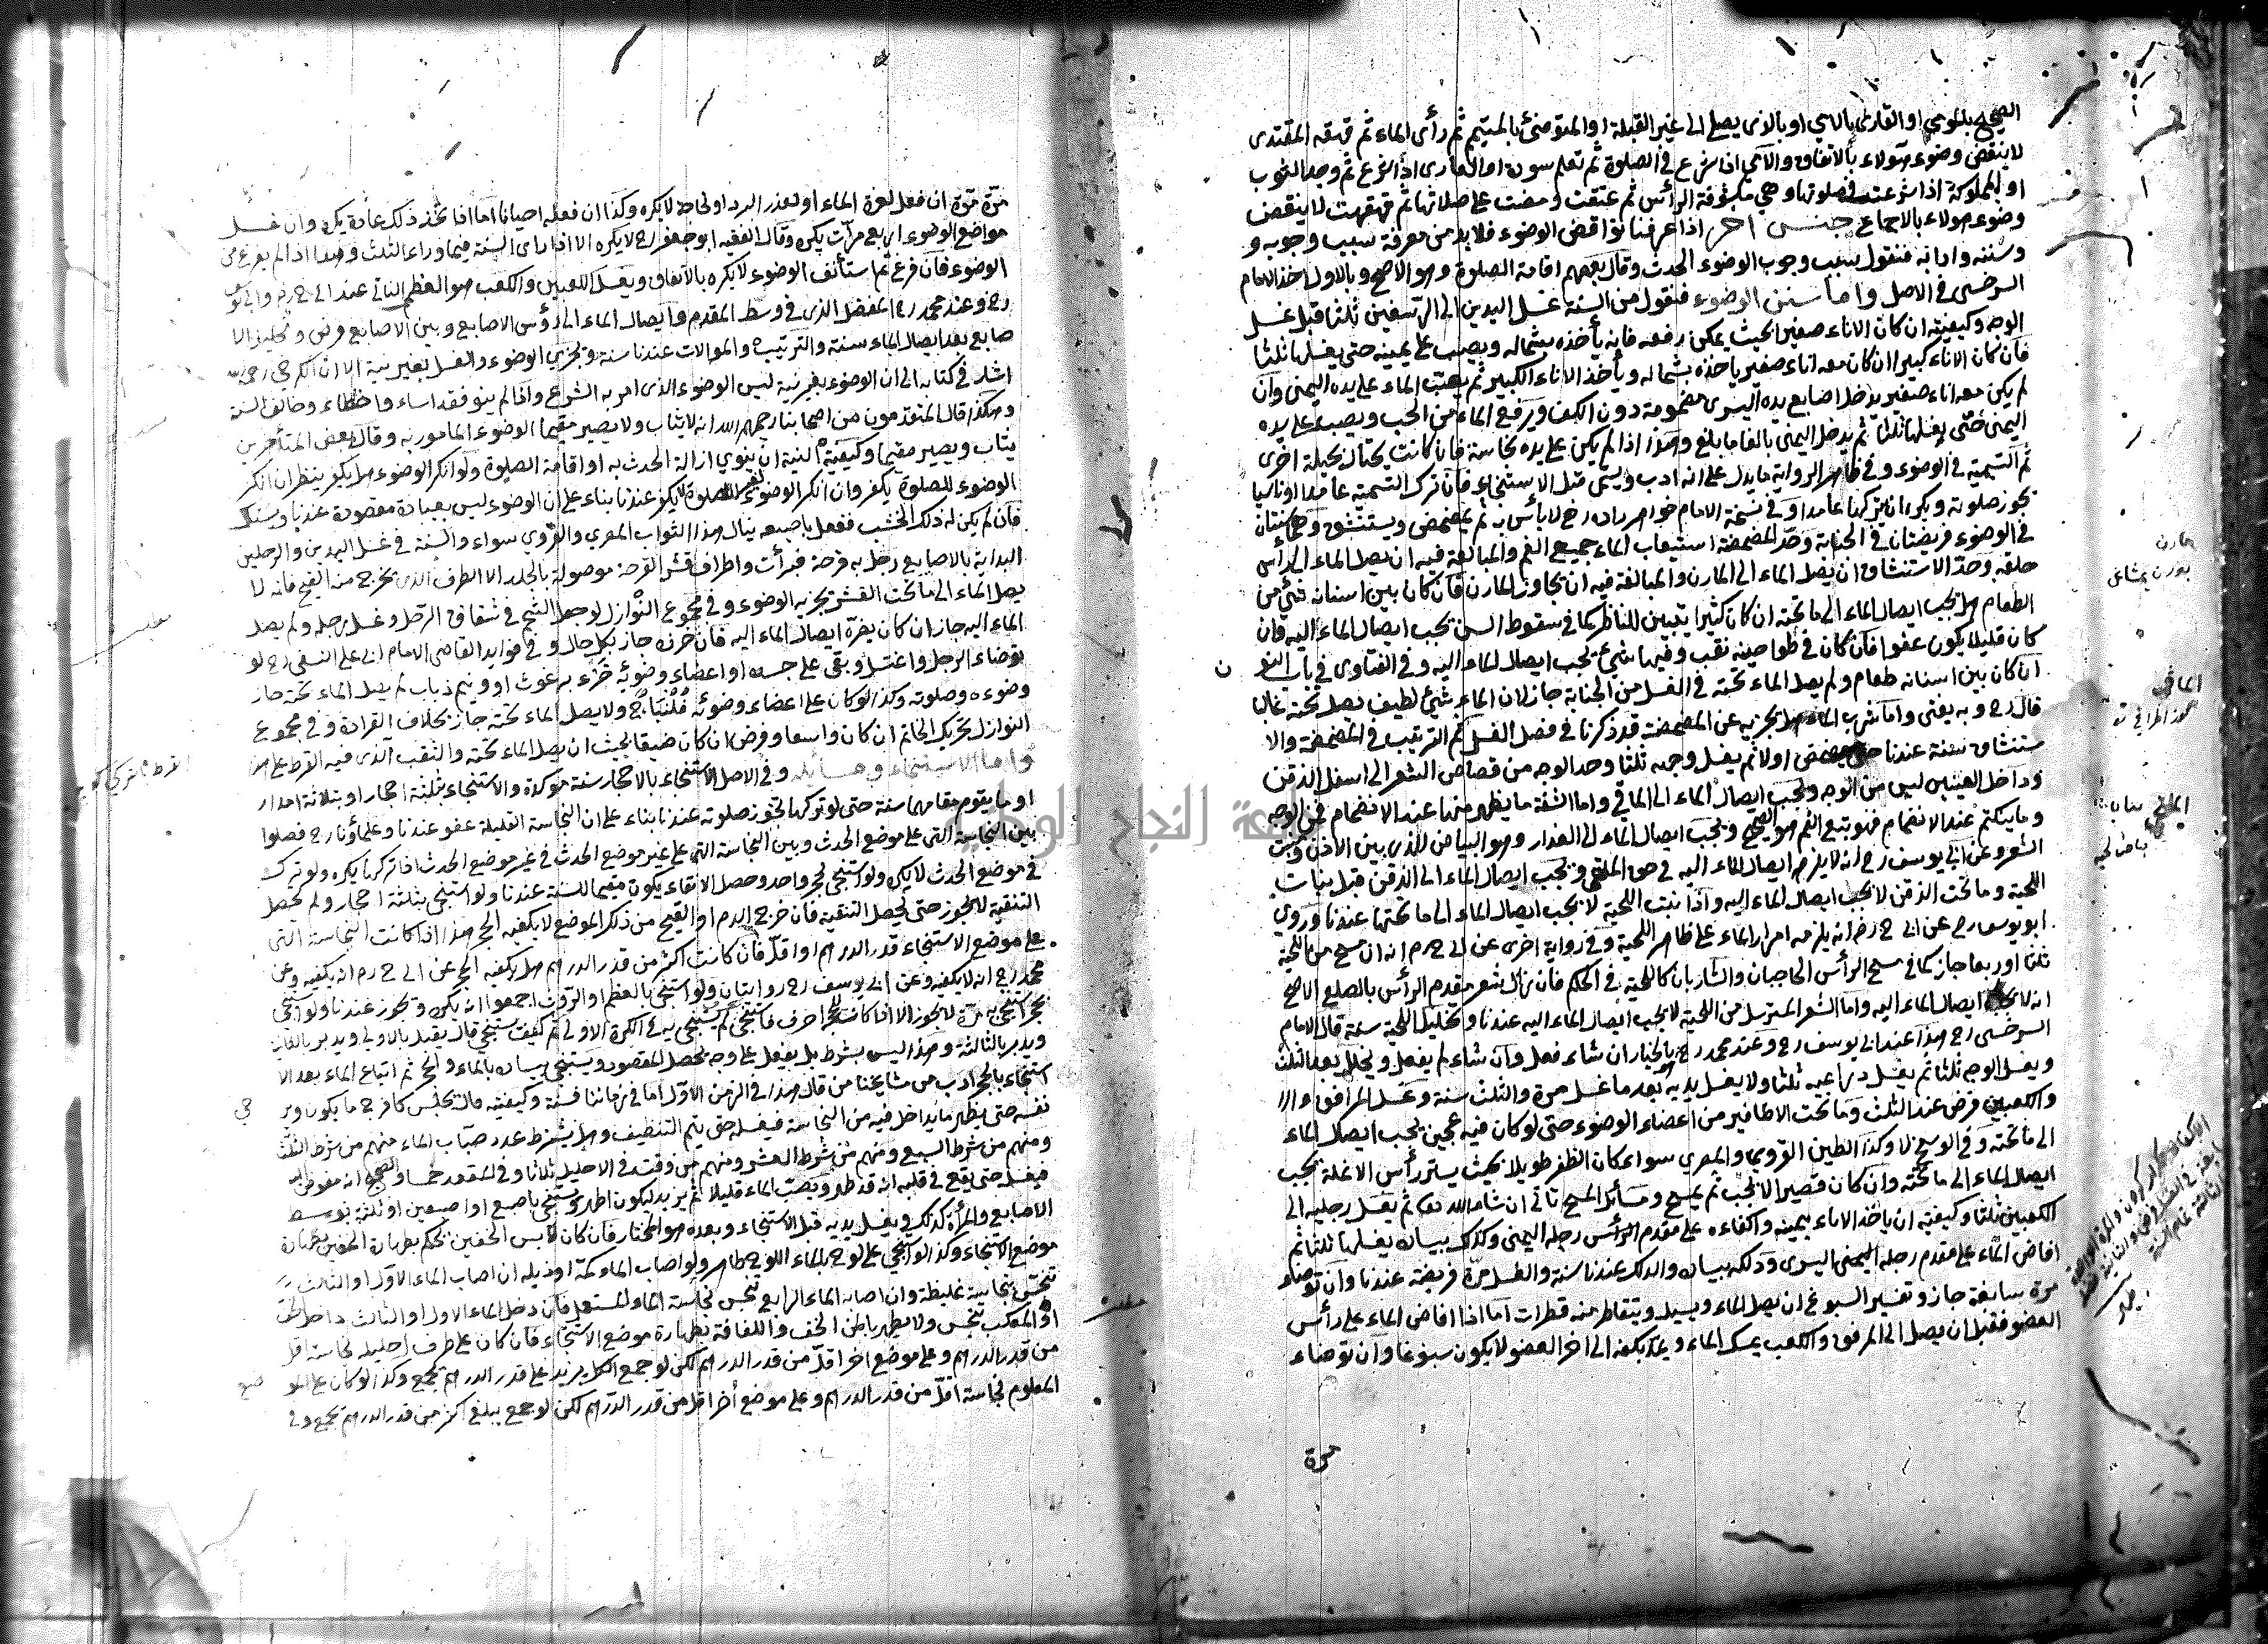 الصحيح بالمومي او القارئ بالامي او بالاذى يصلي الى غير القبلة او المتوضئ بالمتيمم ثم رأى الماء ثم قهقه المقتدى
لا ينقض وضوء هؤلاء بالاتفاق والامي اذا شرع في الصلوة ثم تعلم سورة او العارى اذا شرع ثم وجد الثوب
او المملوكة اذا شرعت في صلوتها وهي مكشوفة الرأس ثم عتقت ومضت على صلاتها ثم قهقهت لا ينقض
وضوء هؤلاء بالاجماع جنس اخر اذا عرفنا نواقض الوضوء فلا بد من معرفة سبب وجوبه و
وسننه وادابه فنقول سبب وجوب الوضوء الحدث وقال بعضهم اقامة الصلوة وهو الاصح وبالاول اخذ الامام
السرخسى في الاصل واما سنن الوضوء فنقول من السنة غسل اليدين الى الرسغين ثلثا قبل غسل
الوجه وكيفيته ان كان الاناء صغيرا بحيث يمكن رفعه فانه يأخذه بشماله ويصب على يمينه حتى يغسلها ثلثا
فان كان الاناء كبيرا ان كان معه اناء صغير يأخذه بشماله ويأخذ الاناء الكبير ثم يصب الماء على يده اليمنى وان
لم يكن معه اناء صغير يدخل اصابع يده اليسرى مضمومة دون الكف ويرفع الماء من الحب ويصب على يده
اليمنى حتى يغسلها ثلثا ثم يدخل اليمنى بالغا ما بلغ وهذا اذا لم يكن على يده نجاسة فان كانت يحتال بحيلة اخرى
ثم التسمية في الوضوء وفي ظاهر الرواية ما يدل على انه ادب ويسمى قبل الاستنجاء فان ترك التسمية عامدا او ناسيا
تجوز صلوته ويكره ان يتركها عامدا وفي نسخة الامام خواهر زاده رح لا بأس به ثم يمضمض ويستنشق وهما سنتان
في الوضوء فريضتان في الجنابة وحد المضمضة استيعاب الماء جميع الفم والمبالغة فيه ان يصل الماء الى رأس
حلقه وحد الاستنشاق ان يصل الماء الى المارن والمبالغة فيه ان يجاوز المارن فان كان بين اسنانه شئ من
الطعام هل يجب ايصال الماء الى ما تحته ان كان كثيرا يتبين للناظر كما في سقوط السن يجب ايصال الماء اليه وان
كان قليلا يكون عفوا فان كان في طواحينه نقب وفيها شئ يجب ايصال الماء اليه وفي الفتاوى في باب النون
ان كان بين اسنانه طعام ولم يصل الماء تحته في الغسل من الجنابة جاز لان الماء شئ لطيف يصل تحته غالبا
قال رح وبه يفتى واما شرب الماء هل يجزيه عن المضمضة قد ذكرنا في فصل الغسل ثم الترتيب في المضمضة والا
ستنشاق سنة عندنا حتى يمضمض اولا ثم يغسل وجهه ثلثا وحد الوجه من قصاص الشعر الى اسفل الذقن
وداخل العينين ليس من الوجه ويجب ايصال الماء الى المآقي واما الشفة ما يظهر منها عند الانضمام فمن الوجه
وما ينكتم عند الانضمام فهو تبع الفم هو الصحيح ويجب ايصال الماء الى العذار وهو البياض الذى بين الاذن ومنبت
الشعر وعن ابي يوسف رح انه لا يلزم ايصال الماء اليه في حق الملتحي ويجب ايصال الماء الى الذقن قبل نبات
اللحية وما تحت الذقن لا يجب ايصال الماء اليه واذا نبت اللحية لا يجب ايصال الماء الى ما تحتها عندنا وروى
ابو يوسف رح عن ابي ح رح انه يلزمه امرار الماء على ظاهر اللحية وفي رواية اخرى عن ابي ح رح انه ان مسح من اللحية
ثلثا او ربعا جاز كما في مسح الرأس الحاجبان والشاربان كاللحية في الحكم فان زال شعر مقدم الرأس بالصلع الاصح
انه لا يجب ايصال الماء اليه واما الشعر المسترسل من اللحية لا يجب ايصال الماء اليه عندنا وتخليل اللحية سنة قال الامام
السرخسى رح هذا عند ابي يوسف رح وعند محمد رح بالخيار ان شاء فعل وان شاء لم يفعل ويخلل بعد الثلث
ويغسل الوجه ثلثا ثم يغسل ذراعيه ثلثا ولا يغسل يديه بعد ما غسل مرة والثلث سنة وغسل المرافق والا
والكعبين فرض عند الثلث وما تحت الاظافير من اعضاء الوضوء حتى لو كان فيه عجين يجب ايصال الماء
الى ما تحته وفي الوسخ لا وكذا الطين القروي والمصرى سواء كان الظفر طويلا بحيث يستر رأس الانملة يجب
ايصال الماء الى ما تحته وان كان قصيرا لا يجب ثم يمسح ومسائل المسح تأتي ان شاء الله تعالى ثم يغسل رجليه الى
الكعبين ثلثا وكيفيته ان يأخذ الاناء بيمينه واكفاءه على مقدم رجله اليمنى وكذلك بيساره يغسلها ثلثا ثم
افاض الماء على مقدم رجله اليسرى ودلكه بيساره والدلك عندنا سنة والغسل مرة فريضة عندنا وان توضاء
مرة سابغة جاز وتفسير السبوغ ان يصل الماء ويسيل ويتقاطر منه قطرات اما اذا افاض الماء على رأس
العضو فقبل ان يصل الى المرفق والكعب يمسك الماء ويمده بكفه الى اخر العضو لا يكون سبوغا وان توضاء
مرة
مارن
بورن يمشاغى
مرة مرة ان فعل لعزة الماء او لعذر البرد او لحاجة لا يكره وكذا ان فعله احيانا اما اذا اتخذ ذلك عادة يكره وان غسل
مواضع الوضوء اربع مرات يكره وقال الفقيه ابو جعفر رح لا يكره الا اذا راى السنة فيما وراء الثلث وهذا اذا لم يفرغ من
الوضوء فان فرغ ثم استأنف الوضوء لا يكره بالاتفاق ويغسل الكعبين والكعب هو العظم الناتى عند ابي ح رح وابي يوسف
رح وعند محمد رح المفصل الذى في وسط القدم وايصال الماء الى رؤس الاصابع وبين الاصابع فرض وتخليل الا
صابع بعد ايصال الماء سنة والترتيب والموالات عندنا سنة ويجزى الوضوء والغسل بغير نية الا ان الكرخى رحمه الله
اشار في كتابه الى ان الوضوء بغير نية ليس الوضوء الذى امر به الشرع واذا لم ينو فقد اساء واخطاء وخالف السنة
وهكذا قال المتقدمون من اصحابنا رحمهم الله انه لا يثاب ولا يصير مقيما الوضوء المأمور به وقال بعض المتأخرين
يثاب ويصير مقيما وكيفية النية ان ينوي ازالة الحدث به او اقامة الصلوة ولو انكر الوضوء هل يكفر ينظر ان انكر
الوضوء للصلوة يكفر وان انكر الوضوء لغير الصلوة لا يكفر عندنا بناء على ان الوضوء ليس بعبادة مقصودة عندنا ويستاك
فان لم يكن له ذلك الخشب ففعل باصبعه ينال هذا الثواب المصري والقروي سواء والسنة في غسل اليدين والرجلين
البداية بالاصابع رجل به قرحة فبرأت واطراف قشر القرحة موصولة بالجلد الا الطرف الذى يخرج منه القيح فانه لا
يصل الماء الى ما تحت القشر يجزيه الوضوء وفي مجموع النوازل لو جعل الشحم في شقاق الرجل وغسل رجله ولم يصل
الماء اليه جاز ان كان يضره ايصال الماء اليه فان خرزه جاز بكل حال وفي فوايد القاضى الامام ابي على النسفى رح لو
توضاء الرجل واغتسل وبقى على جسده او اعضاء وضوئه خرء برغوث او ونيم ذباب لم يصل الماء تحته جاز
وضوءه وصلوته وكذا لو كان على اعضاء وضوئه ولا يصل الماء تحته جاز بخلاف القرادة وفي مجموع
النوازل تحريك الخاتم ان كان واسعا وفرض ان كان ضيقا بحيث ان يصل الماء تحته والنقب الذى فيه القرط على هذا
واما الاستنجاء ومسائله وفي الاصل الاستنجاء بالاحجار سنة مؤكدة والاستنجاء بثلثة احجار او بثلاثة امدار
او ما يقوم مقامها سنة حتى لو تركها تجوز صلوته عندنا بناء على ان النجاسة القليلة عفو عندنا وعلماؤنا رح فصلوا
بين النجاسة التى على موضع الحدث وبين النجاسة التى على غير موضع الحدث في غير موضع الحدث اذا تركها يكره ولو ترك
في موضع الحدث لا يكره ولو استنجى بحجر واحد وحصل الانقاء يكون مقيما للسنة عندنا ولو استنجى بثلثة احجار ولم تحصل
التنقية لا يجوز حتى تحصل التنقية فان خرج الدم او القيح من ذلك الموضع لا يكفيه الحجر هذا اذا كانت النجاسة التى
على موضع الاستنجاء قدر الدرهم او اقل فان كانت اكثر من قدر الدرهم هل يكفيه الحجر عن ابي ح رح انه يكفيه وعن
محمد رح انه لا يكفيه وعن ابي يوسف رح روايتان ولو استنجى بالعظم او الروث اجمعوا انه يكره ويجوز عندنا ولو استنجى
بحجر استنجى به مرة لا يجوز الا اذا كان للحجر احرف فاستنجى لم يستنج به في الكرة الاولى ثم كيف يستنجى قال يقبل بالاولى ويدبر بالثانى
ويدبر بالثالثة وهذا ليس بشرط بل يفعل على وجه يحصل المقصود ويستنجى بيساره بالماء والحجر ثم اتباع الماء بعد الا
استنجاء بالحجر ادب من مشايخنا من قال هذا في الزمن الاول اما في زماننا فسنة وكيفيته قال يجلس كافرج ما يكون ويرخى
نفسه حتى يظهر ما يداخل فيه من النجاسة فيغسله حتى يتم التنظيف وهل يشترط عدد صبات الماء منهم من شرط الثلث
ومنهم من شرط السبع ومنهم من شرط العشر ومنهم من وقت في الاحليل ثلثا وفي المقعد خمسا والصحيح انه مفوض اليه
فيغسل حتى يقع في قلبه انه قد طهر ويصب الماء قليلا ثم يزيد ليكون اطهر ويستنجى باصبع او اصبعين او ثلثة بوسط
الاصابع والمرأة كذلك ويغسل يديه قبل الاستنجاء وبعده هو المختار فان كان لابس الخفين يحكم بطهارة الخفين بطهارة
موضع الاستنجاء وكذا لو استنجى على لوح بالماء اللوح طاهر ولو اصاب الماء كمه او ذيله ان اصاب الماء الاول او الثانى
تنجس نجاسة غليظة وان اصابه الماء الرابع تنجس نجاسة الماء المستعمل فان دخل الماء الاول او الثالث داخل الخف
او المكعب تنجس ولا يطهر باطن الخف واللفافة بطهارة موضع الاستنجاء فان كان على طرف احليله نجاسة اقل
من قدر الدرهم وعلى موضع اخر اقل من قدر الدرهم لكن لو جمع الكل يزيد على قدر الدرهم يجمع وكذا لو كان على المو
المعلوم نجاسة اقل من قدر الدرهم وعلى موضع اخر اقل من قدر الدرهم لكن لو جمع يبلغ اكثر من قدر الدرهم يجمع وفي
جامعة النجاح الوطنية